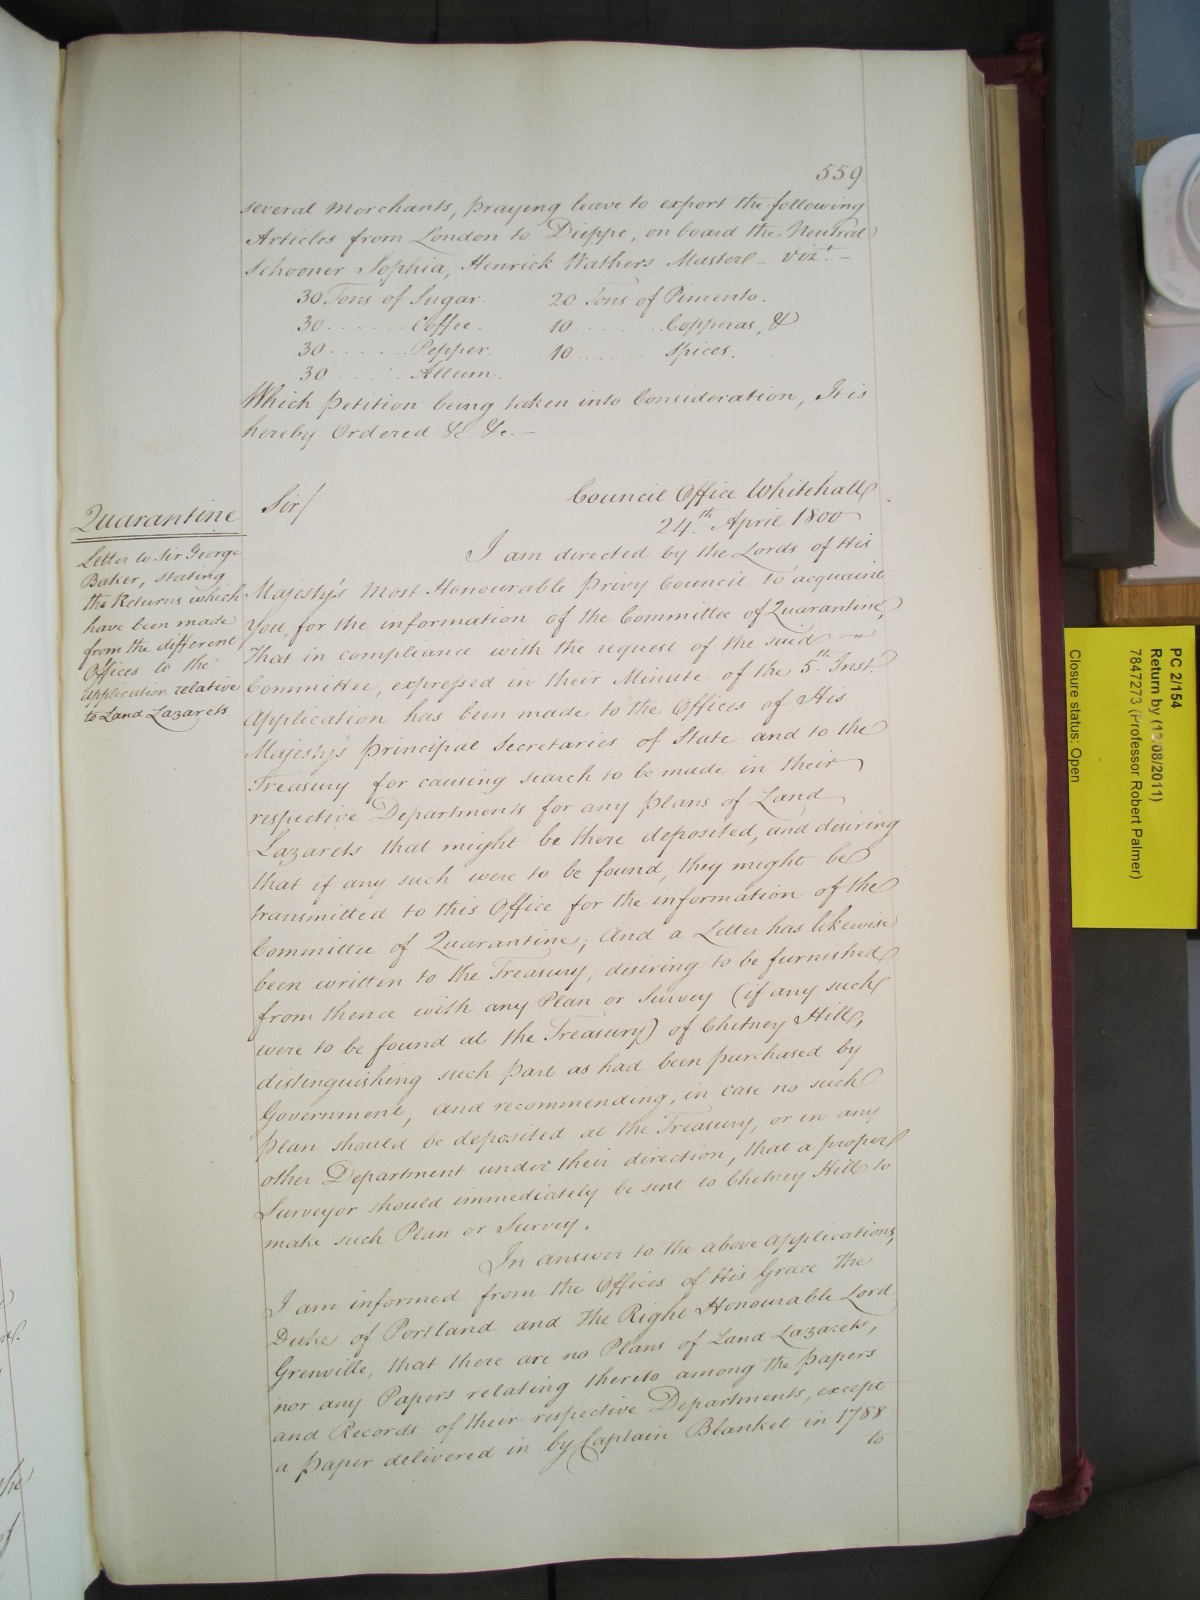 559.
several Merchants, praying leave to export the following
Articles from London to Dieppe, on board the Neutral
Schooner Sophia, Henrick Wathers Master - vizt. -
30 Tons of Sugar. 20 Tons of Pimento.
30 . . . . . . Coffee. 10 . . . . . . . Copperas, &
30 . . . . . . Pepper. 10 . . . . . . . Spices.
30 . . . . . . Allum.
Which Petition being taken into Consideration, It is
hereby Ordered &c. &c. -
Quarantine
Letter to Sir George
Baker, stating
the Returns which
have been made
from the different
Offices to the
application relative
to Land Lazarets
Sir/
Council Office Whitehall
24th. April 1800
I am directed by the Lords of His
Majesty's Most Honourable Privy Council to acquaint
You, for the information of the Committee of Quarantine,
That in compliance with the request of the said
Committee, expressed in their Minute of the 5th Inst.
Application has been made to the Offices of His
Majesty's Principal Secretaries of State and to the
Treasury for causing search to be made in their
respective Departments for any plans of Land
Lazarets that might be there deposited, and desiring
that if any such were to be found, they might be
transmitted to this Office for the information of the
Committee of Quarantine; And a Letter has likewise
been written to the Treasury, desiring to be furnished
from thence with any Plan or Survey (if any such
were to be found at the Treasury) of Chetney Hill,
distinguishing such part as had been purchased by
Government, and recommending, in case no such
plan should be deposited at the Treasury, or in any
other Department under their direction, that a proper
Surveyor should immediately be sent to Chetney Hill to
make such Plan or Survey.
In answer to the above applications,
I am informed from the Offices of His Grace The
Duke of Portland and The Right Honourable Lord
Grenville, that there are no Plans of Land Lazarets,
nor any Papers relating thereto among the papers
and Records of their respective Departments, except
a paper delivered in by Captain Blanket in 1788
to
PC 2/154
Return by (12/08/2011)
7847273 (Professor Robert Palmer)
Closure status: Open